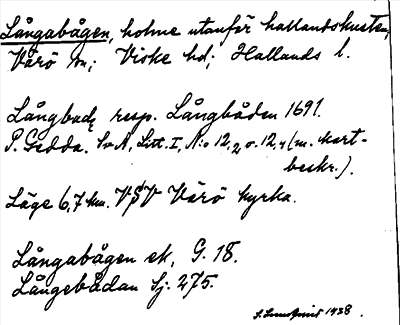 Långabågen, holme utanför hallandskusten,
Värö sn; Viske hd; Hallands l.
Långbadz resp. Långbåden 1691.
P. Gedda. SvA, Litt. I, N:o 12,2 o. 12,4 (m. kart-
beskr.).
Läge 6,7 km. VSV Värö kyrka.
Långabågen ek. G. 18.
Långebådan Sj. 275.
1938.